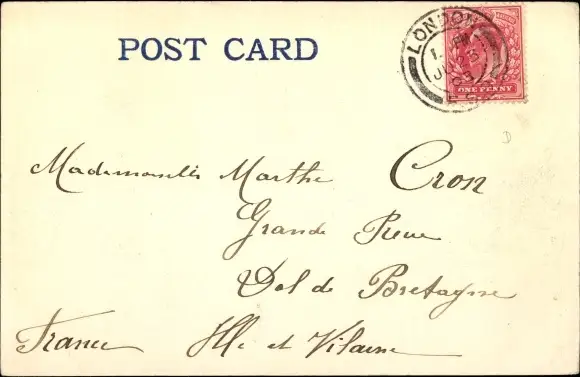 POST CARD
LONDON
ONE PENNY
Mademoiselle Marthe Cron
Grande Rue
Dol de Bretagne
France Ille et Vilaine